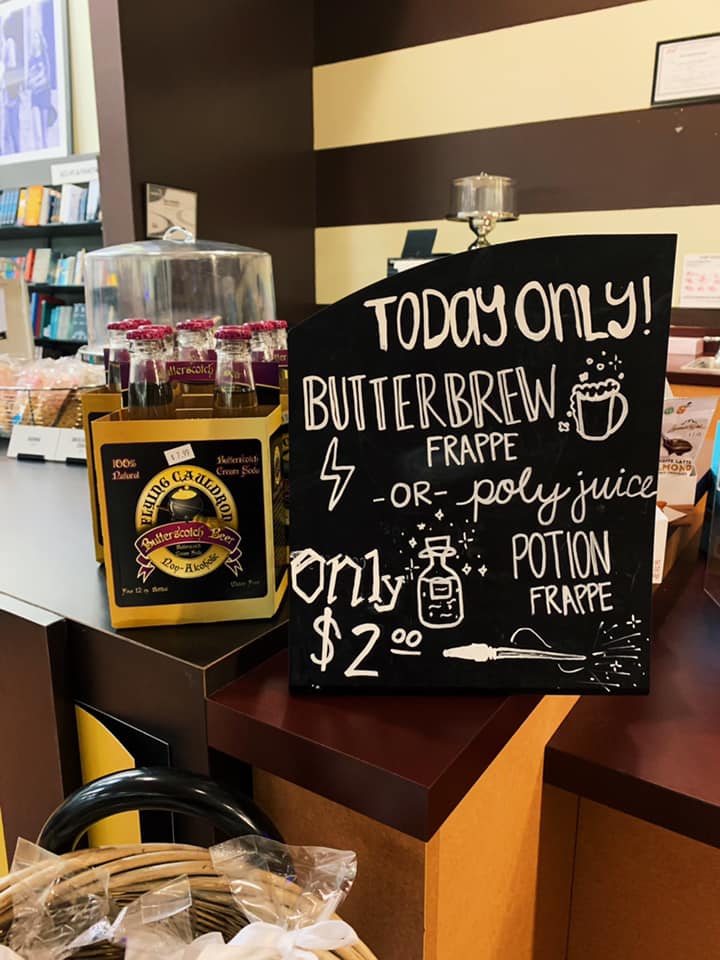 TODAY ONLY!
BUTTERBREW
FRAPPE
-OR- poly juice
POTION
FRAPPE
Only
$2.00
$7.99
100%
Natural
Butterscotch
Cream Soda
FLYING CAULDRON
Butterscotch Beer
Butterscotch
Cream Soda
Non-Alcoholic
Four 12 oz. Bottles
Gluten Free